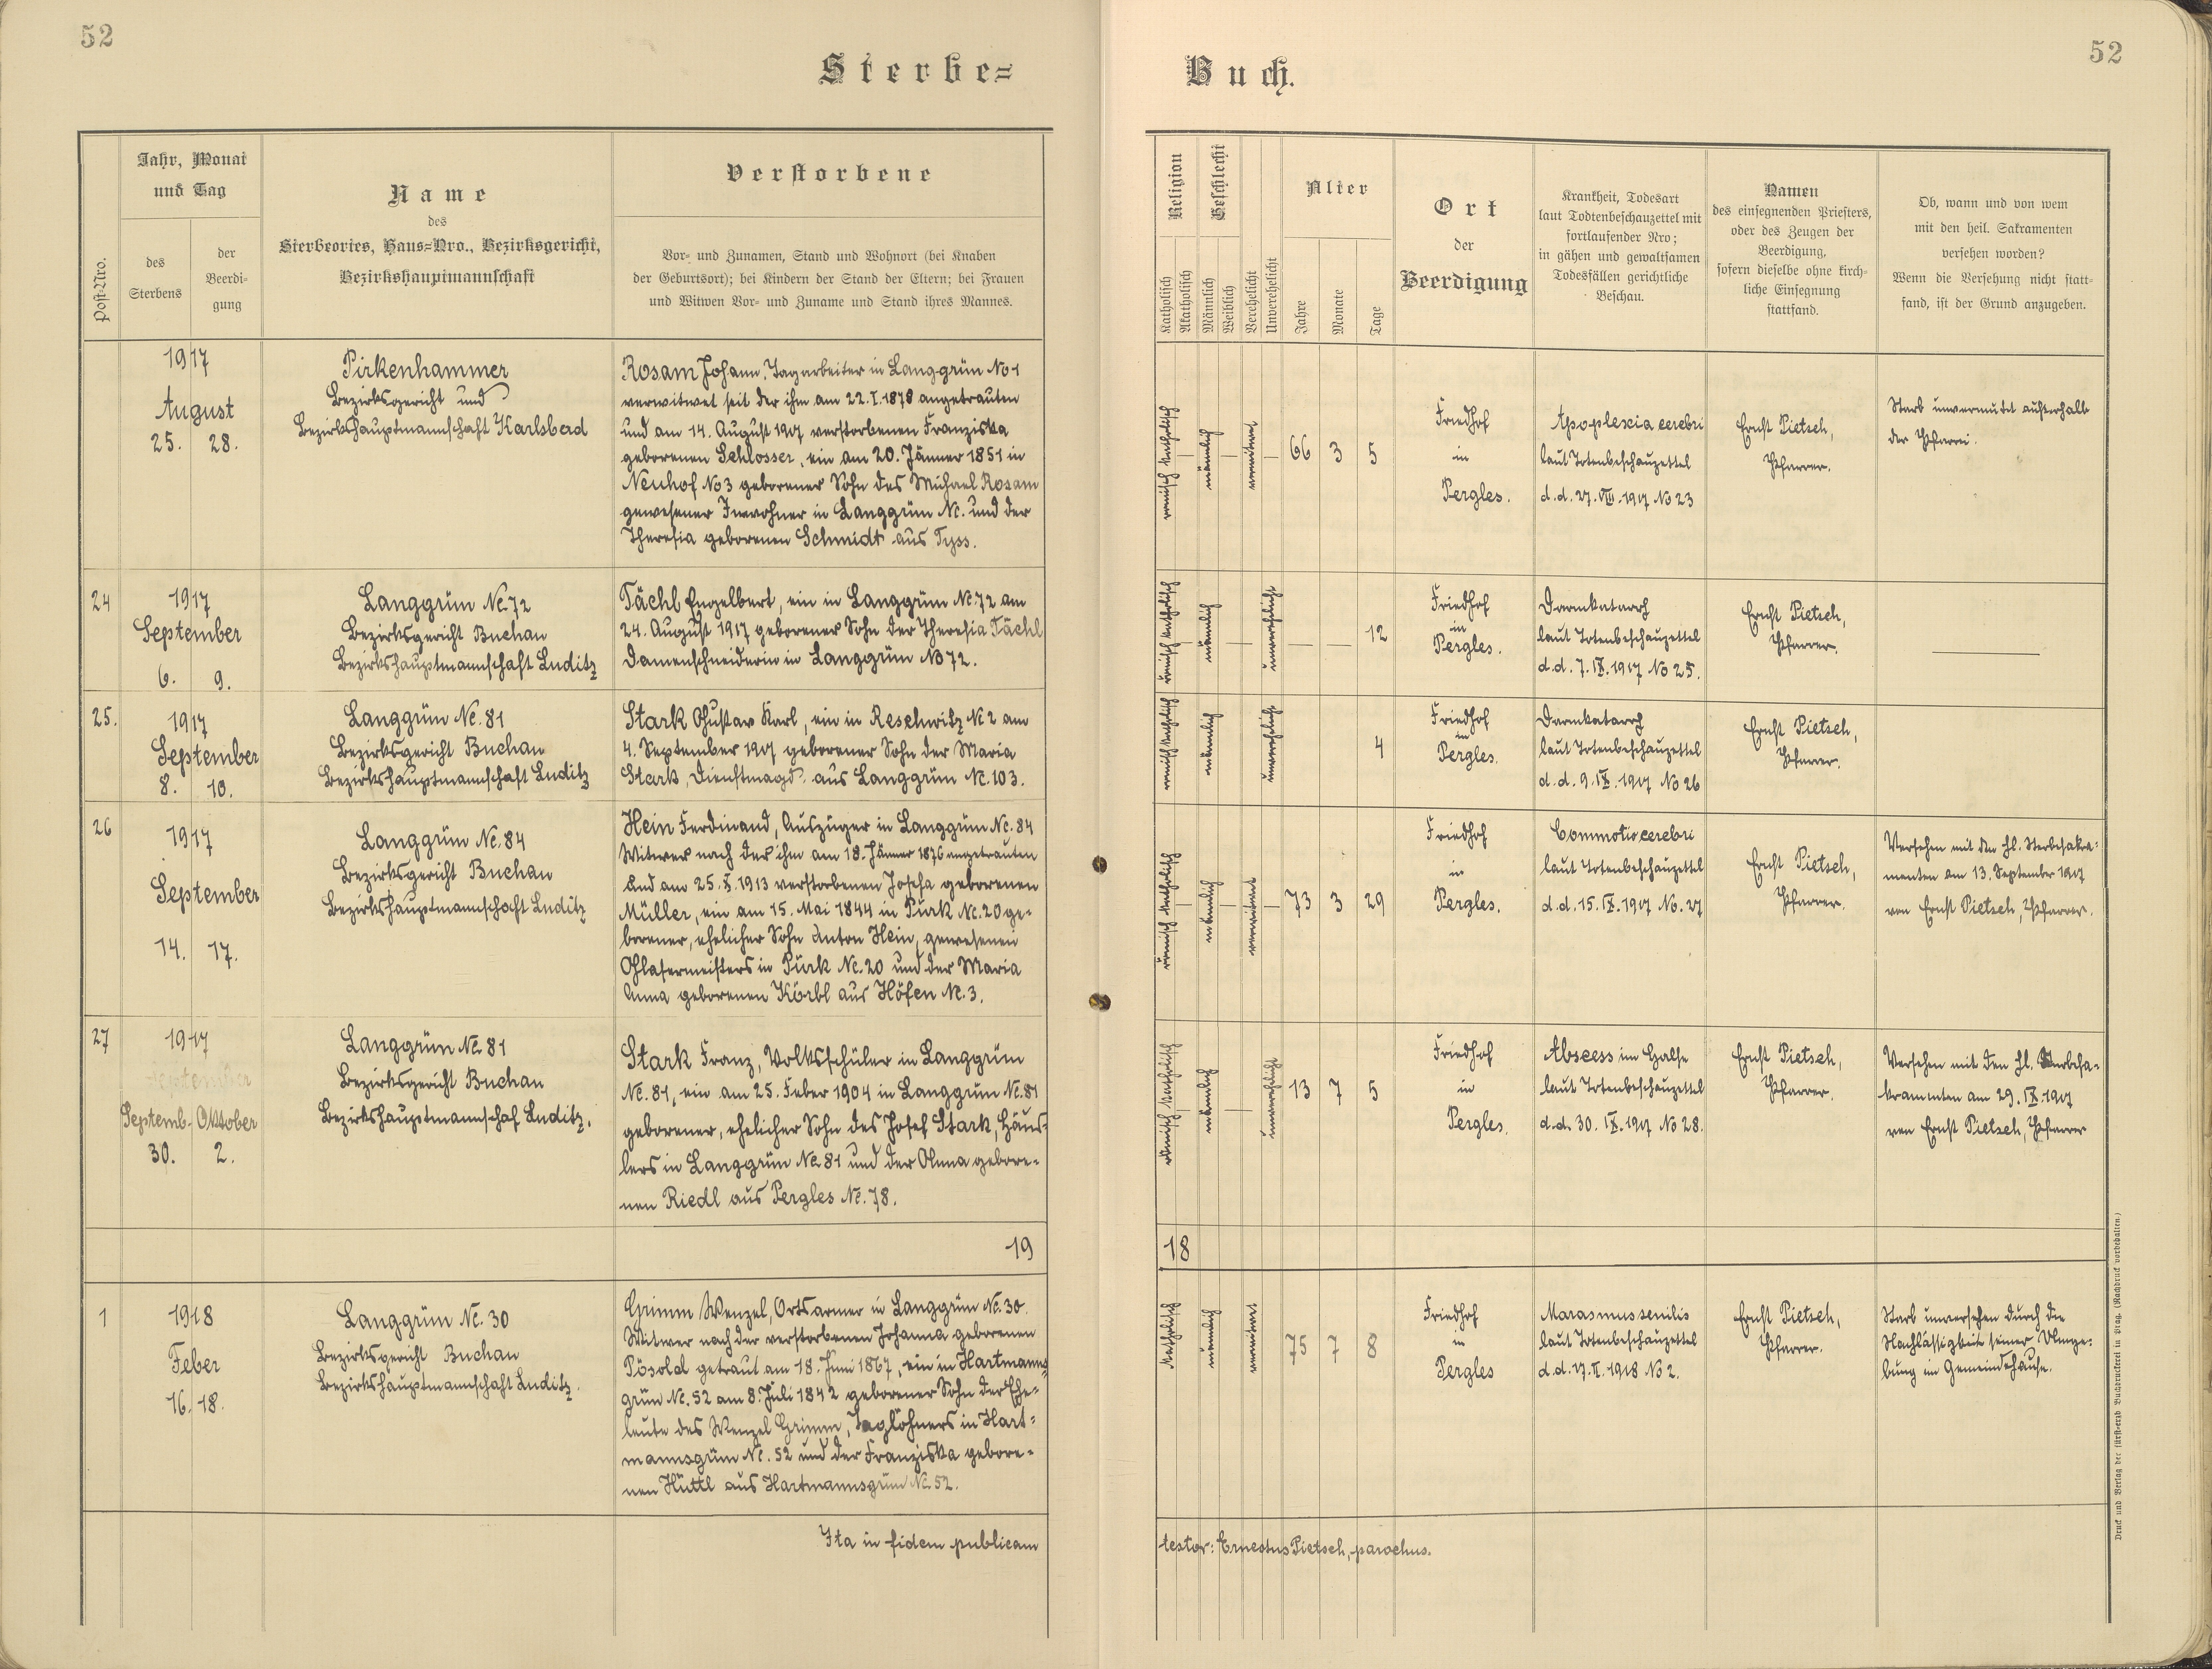 52
52
Sterbe=
Buch.
Post-Nro.
Jahr, Monat
und Tag
des
Sterbens
der
Beerdi-
gung
Name
des
Sterbeortes, Haus=Nro., Bezirksgericht,
Bezirkshauptmannschaft
Verstorbene
Vor- und Zunamen, Stand und Wohnort (bei Knaben
der Geburtsort); bei Kindern der Stand der Eltern; bei Frauen
und Witwen Vor- und Zuname und Stand ihres Mannes.
Religion
Katholisch
Akatholisch
Geschlecht
Männlich
Weiblich
Verehelicht
Unverehelicht
Alter
Jahre
Monate
Tage
Ort
der
Beerdigung
Krankheit, Todesart
laut Todtenbeschauzettel mit
fortlaufender Nro;
in gähen und gewaltsamen
Todesfällen gerichtliche
Beschau.
Namen
des einsegnenden Priesters,
oder des Zeugen der
Beerdigung,
sofern dieselbe ohne kirch-
liche Einsegnung
stattfand.
Ob, wann und von wem
mit den heil. Sakramenten
versehen worden?
Wenn die Versehung nicht statt-
fand, ist der Grund anzugeben.
1917
August
25. 28.
Pirkenhammer
Bezirksgericht und
Bezirkshauptmannschaft Karlsbad
Rosam Johann, Tagarbeiter in Langgrün No 1
verwitwet seit der ihm am 22.I.1878 angetrauten
und am 14. August 1907 verstorbenen Franziska
geborenen Schlosser, ein am 20. Jänner 1851 in
Neuhof No 3 geborener Sohn des Michael Rosam
gewesener Inwohner in Langgrün Nc. und der
Theresia geborenen Schmidt aus Tyss.
66 3 5
Friedhof
in
Pergles.
Apoplescia cerebri
laut Totenbeschauzettel
d.d. 27.VIII.1917 No 23
Ernst Pietsch,
Pfarrer.
Starb unvermutet außerhalb
der Pfarrei.
24
1917
September
6. 9.
Langgrün Nc. 72
Bezirksgericht Buchau
Bezirkshauptmannschaft Luditz
Tächl Engelbert, ein in Langgrün Nc. 72 am
24. August 1917 geborener Sohn der Theresia Tächl
Damenschneiderin in Langgrün No 72.
12
Friedhof
in
Pergles.
Darmkatarrh
laut Totenbeschauzettel
d.d. 7.IX.1917 No 25.
Ernst Pietsch,
Pfarrer.
25.
1917
September
8. 10.
Langgrün Nc. 81
Bezirksgericht Buchau
Bezirkshauptmannschaft Luditz
Stark Gustav Karl, ein in Reschwitz Nc 2 am
4. September 1917 geborener Sohn der Maria
Stark, Dienstmagd aus Langgrün Nc. 103.
4
Friedhof
in
Pergles.
Darmkatarrh
laut Totenbeschauzettel
d.d. 9.IX.1917 No 26
Ernst Pietsch,
Pfarrer.
26
1917
September
14. 17.
Langgrün Nc. 84
Bezirksgericht Buchau
Bezirkshauptmannschaft Luditz
Hein Ferdinand, Auszüger in Langgrün Nc. 84
Witwer nach der ihm am 18. Jänner 1876 angetrauten
und am 25.X.1913 verstorbenen Josefa geborenen
Müller, ein am 15. Mai 1844 in Pürk Nc. 20 ge-
borener, ehelicher Sohn Anton Hein, gewesenen
Glasermeisters in Pürk Nc. 20 und der Maria
Anna geborenen Körbl aus Höfen Nc. 3.
73 3 29
Friedhof
in
Pergles.
Commotio cerebri
laut Totenbeschauzettel
d.d. 15.IX.1917 No. 27
Ernst Pietsch,
Pfarrer.
Versehen mit den hl. Sterbesakra-
menten am 13. September 1917
von Ernst Pietsch, Pfarrer.
27
1917
Septemb. Oktober
30. 2.
Langgrün Nc. 81
Bezirksgericht Buchau
Bezirkshauptmannschaf Luditz.
Stark Franz, Volksschüler in Langgrün
Nc. 81, ein am 25. Feber 1904 in Langgrün Nc. 81
geborener, ehelicher Sohn des Josef Stark, Häus-
lers in Langgrün Nc. 81 und der Anna gebore-
nen Riedl aus Pergles Nc. 78.
13 7 5
Friedhof
in
Pergles.
Abscess im Halse
laut Totenbeschauzettel
d.d. 30.IX.1917 No 28.
Ernst Pietsch,
Pfarrer.
Versehen mit den hl. Sterbesa-
kramenten am 29.IX.1917
von Ernst Pietsch, Pfarrer
19
18
1
1918
Feber
16. 18.
Langgrün Nc. 30
Bezirksgericht Buchau
Bezirkshauptmannschaft Luditz.
Grimm Wenzel, Ortsarmer in Langgrün Nc. 30.
Witwer nach der verstorbenen Johanna geborenen
Pösold getraut am 18. Juni 1867, ein in Hartmanns-
grün Nc. 52 am 8. Juli 1842 geborener Sohn der Ehe-
leute des Wenzel Grimm, Taglöhners in Hart-
mannsgrün Nc. 52 und der Franziska gebore-
nen Hüttl aus Hartmannsgrün Nc. 52.
75 7 8
Friedhof
in
Pergles
Marasmus senilis
laut Totenbeschauzettel
d.d. 17.II.1918 No 2.
Ernst Pietsch,
Pfarrer.
Starb unversehen durch die
Nachlässigkeit seiner Umge-
bung im Gemeindehause.
Ita in fidem publicam
testor: Ernestus Pietsch, parochus.
Druck und Verlag der fürst-erzb Buchdruckerei in Prag. (Nachdruck vorbehalten.)